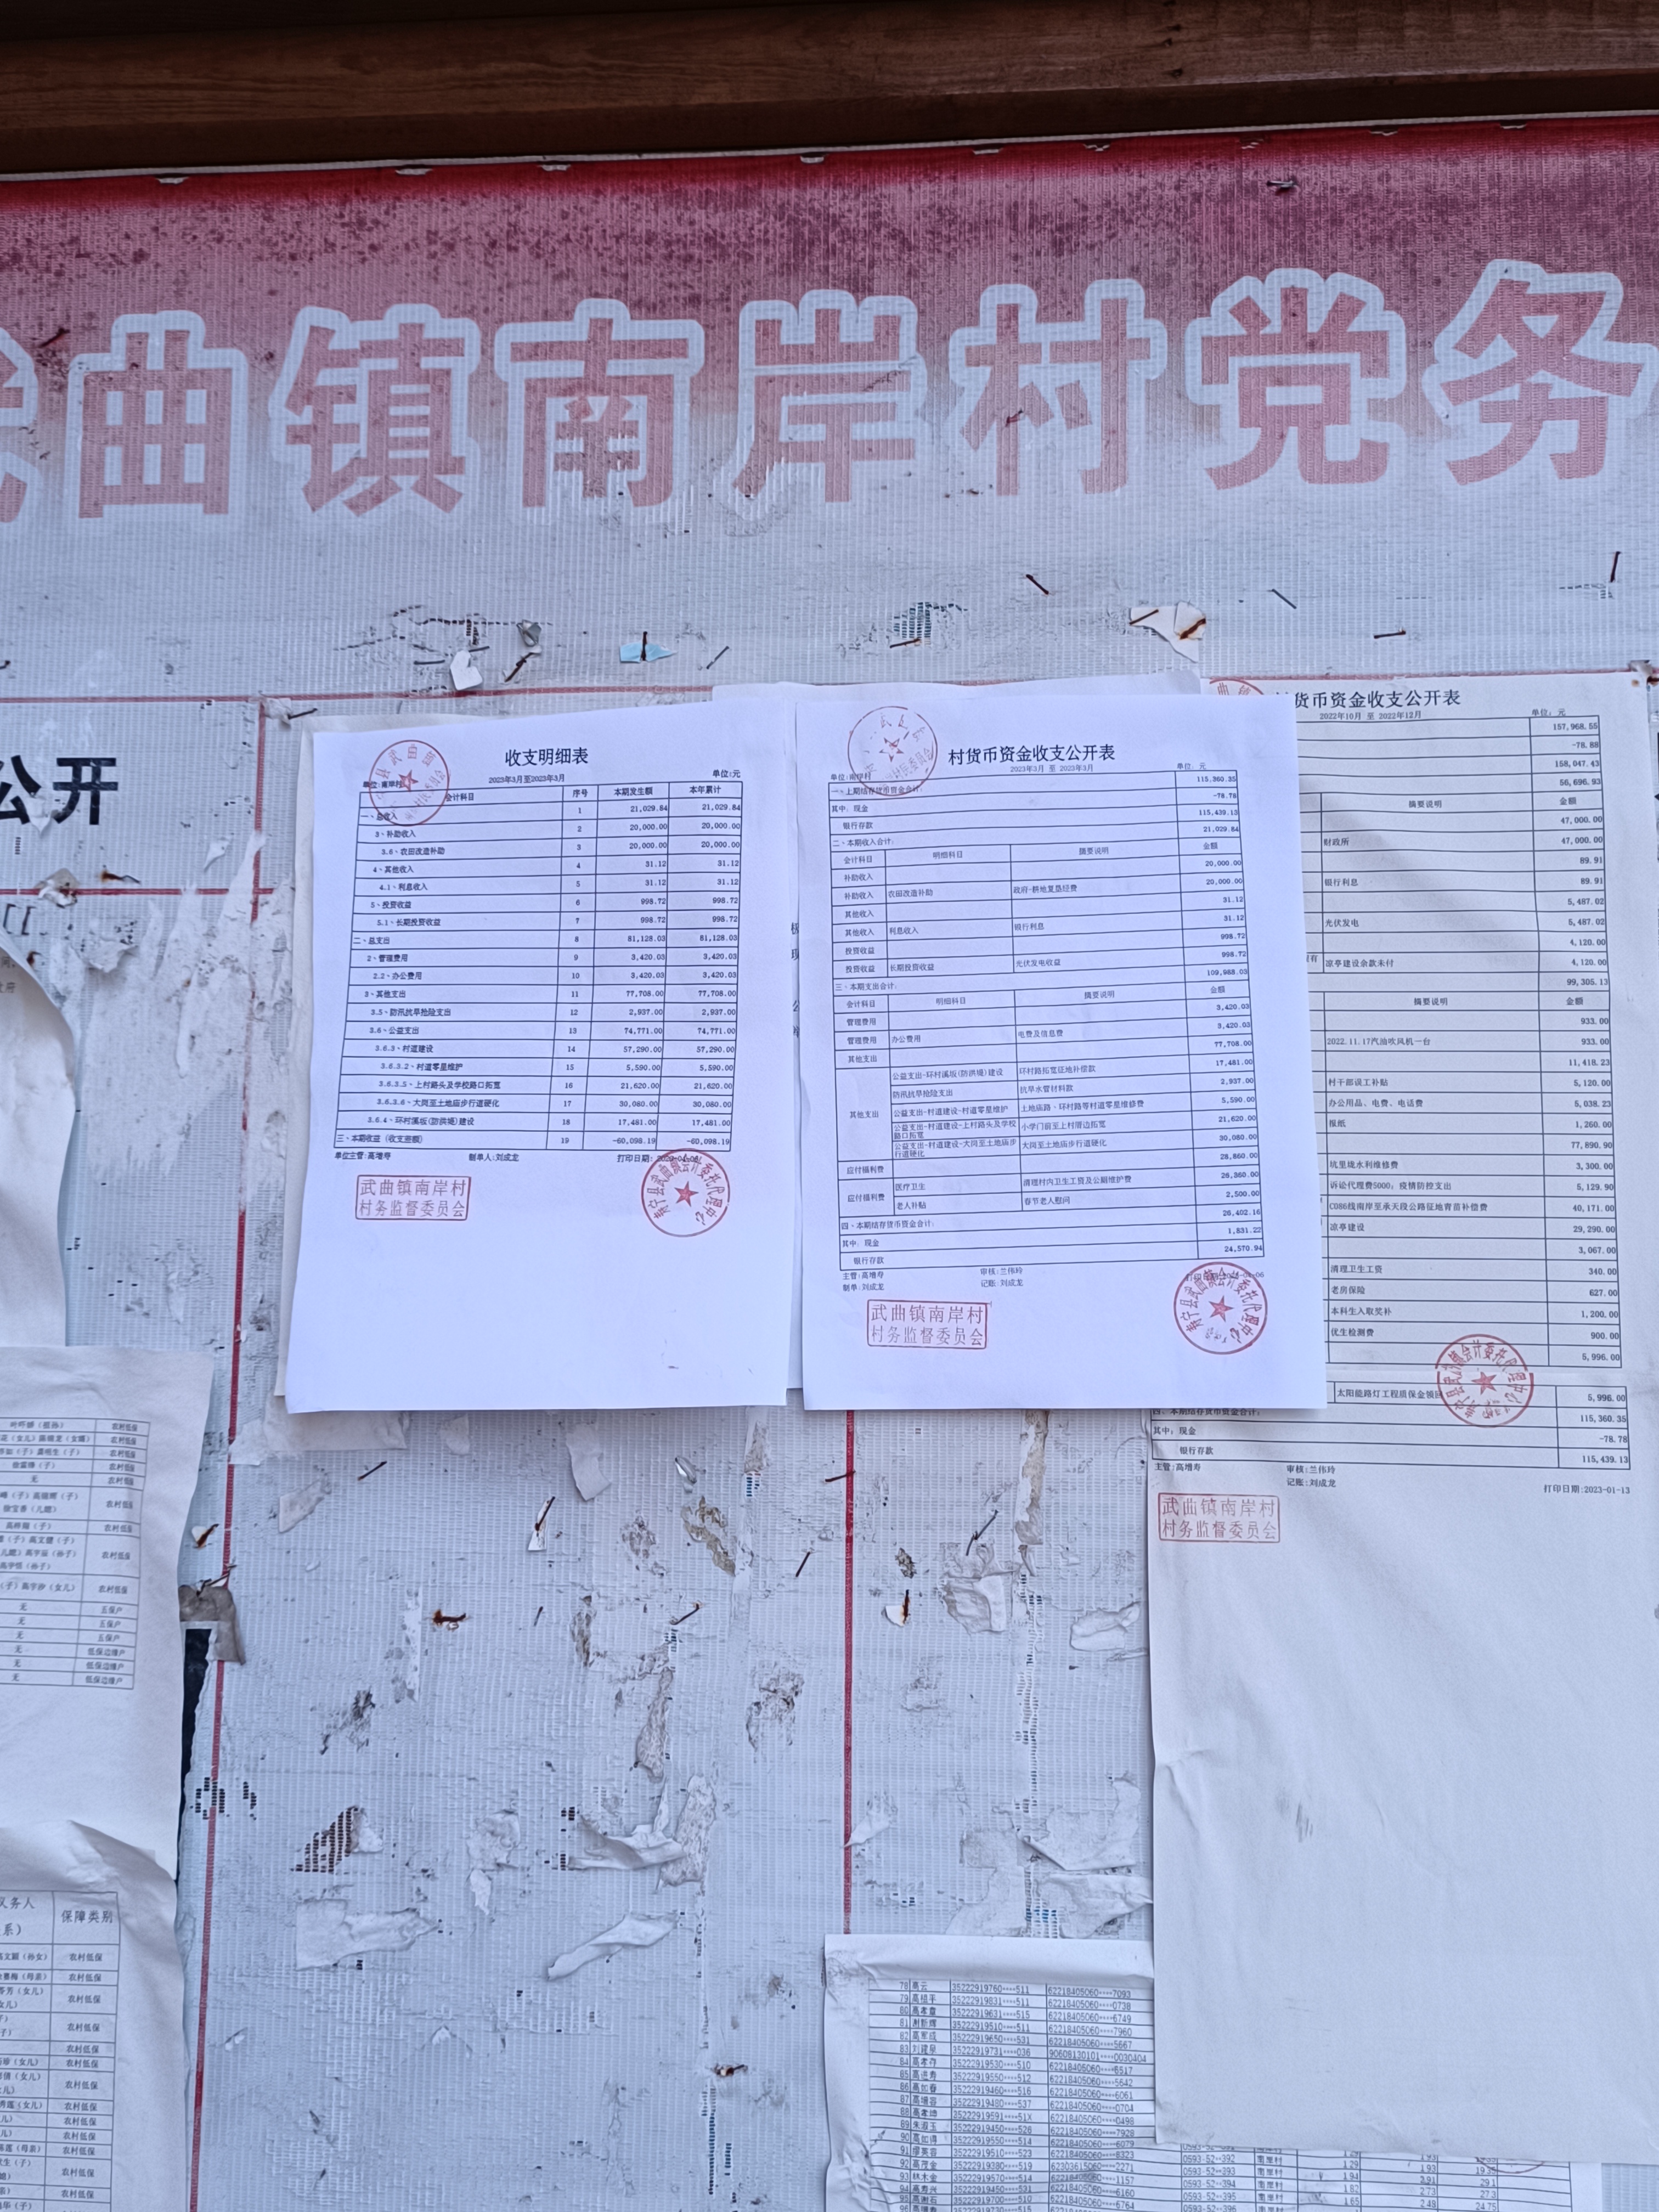 曲镇南岸村党务
公开
收支明细表
2023年3月至2023年3月
单位:元
单位:南岸村
会计科目 序号 本期发生额 本年累计
一、总收入 1 21,029.84 21,029.84
3、补助收入 2 20,000.00 20,000.00
3.6、农田改造补助 3 20,000.00 20,000.00
4、其他收入 4 31.12 31.12
4.1、利息收入 5 31.12 31.12
5、投资收益 6 998.72 998.72
5.1、长期投资收益 7 998.72 998.72
二、总支出 8 81,128.03 81,128.03
2、管理费用 9 3,420.03 3,420.03
2.2、办公费用 10 3,420.03 3,420.03
3、其他支出 11 77,708.00 77,708.00
3.5、防汛抗旱抢险支出 12 2,937.00 2,937.00
3.6、公益支出 13 74,771.00 74,771.00
3.6.3、村道建设 14 57,290.00 57,290.00
3.6.3.2、村道零星维护 15 5,590.00 5,590.00
3.6.3.5、上村路头及学校路口拓宽 16 21,620.00 21,620.00
3.6.3.6、大岗至土地庙步行道硬化 17 30,080.00 30,080.00
3.6.4、环村溪坂(防洪堤)建设 18 17,481.00 17,481.00
三、本期收益(收支差额) 19 -60,098.19 -60,098.19
单位主管:高增寿 制单人:刘成龙 打印日期:
武曲镇南岸村
村务监督委员会
村货币资金收支公开表
2023年3月 至 2023年3月
单位:南岸村 单位:元
一、上期结存货币资金合计: 115,360.35
其中:现金 -78.78
银行存款 115,439.13
二、本期收入合计: 21,029.84
会计科目 明细科目 摘要说明 金额
补助收入 20,000.00
补助收入 农田改造补助 政府-耕地复垦经费 20,000.00
其他收入 31.12
其他收入 利息收入 银行利息 31.12
投资收益 998.72
投资收益 长期投资收益 光伏发电收益 998.72
三、本期支出合计: 109,988.03
会计科目 明细科目 摘要说明 金额
管理费用 3,420.03
管理费用 办公费用 电费及信息费 3,420.03
其他支出 77,708.00
其他支出 公益支出-环村溪坂(防洪堤)建设 环村路拓宽征地补偿款 17,481.00
防汛抗旱抢险支出 抗旱水管材料款 2,937.00
公益支出-村道建设-村道零星维护 土地庙路、环村路等村道零星维修费 5,590.00
公益支出-村道建设-上村路头及学校路口拓宽 小学门前至上村厝边拓宽 21,620.00
公益支出-村道建设-大岗至土地庙步行道硬化 大岗至土地庙步行道硬化 30,080.00
应付福利费 28,860.00
应付福利费 医疗卫生 清理村内卫生工资及公厕维护费 26,360.00
老人补贴 春节老人慰问 2,500.00
四、本期结存货币资金合计: 26,402.16
其中:现金 1,831.22
银行存款 24,570.94
主管:高增寿 审核:兰伟玲
制单:刘成龙 记账:刘成龙
武曲镇南岸村
村务监督委员会
货币资金收支公开表
2022年10月 至 2022年12月
单位:元
157,968.55
-78.88
158,047.43
56,696.93
摘要说明 金额
47,000.00
财政所 47,000.00
89.91
银行利息 89.91
5,487.02
光伏发电 5,487.02
4,120.00
凉亭建设余款未付 4,120.00
99,305.13
摘要说明 金额
933.00
2022.11.17汽油吹风机一台 933.00
11,418.23
村干部误工补贴 5,120.00
办公用品、电费、电话费 5,038.23
报纸 1,260.00
77,890.90
坑里垅水利维修费 3,300.00
诉讼代理费5000;疫情防控支出 5,129.90
C086线南岸至承天段公路征地青苗补偿费 40,171.00
凉亭建设 29,290.00
3,067.00
清理卫生工资 340.00
老房保险 627.00
本科生入取奖补 1,200.00
优生检测费 900.00
5,996.00
太阳能路灯工程质保金领回 5,996.00
四、本期结存货币资金合计: 115,360.35
其中:现金 -78.78
银行存款 115,439.13
主管:高增寿 审核:兰伟玲
记账:刘成龙 打印日期:2023-01-13
武曲镇南岸村
村务监督委员会
农村低保
农村低保
农村低保
农村低保
无 农村低保
农村低保
农村低保
农村低保
农村低保
无 五保户
无 五保户
无 五保户
无 低保边缘户
无 低保边缘户
无 低保边缘户
义务人 保障类别
系)
农村低保
农村低保
农村低保
农村低保
农村低保
农村低保
农村低保
农村低保
农村低保
农村低保
农村低保
农村低保
78 高云 35222919760****511 62218405060****7093
79 高祖平 35222919831****511 62218405060****0738
80 高孝章 35222919631****515 62218405060****6749
81 谢新辉 35222919510****511 62218405060****7960
82 高军成 35222919650****531 62218405060****5667
83 刘建皇 35222919731****036 90608130101****0030404
84 高孝存 35222919530****510 62218405060****6517
85 高进寿 35222919550****512 62218405060****5642
86 高如春 35222919460****516 62218405060****6061
87 35222919480****537 62218405060****0704
88 35222919591****51X 62218405060****0498
89 35222919450****526 62218405060****7928
90 高如得 35222919550****514 62218405060****6079
91 缪英容 35222919510****523 62218405060****8323
92 高茂金 35222919380****519 62303615060****2271
93 林木金 35222919570****514 62218405060****1157
94 高寿兴 35222919450****531 62218405060****6160
95 高谢石 35222919700****510 62218405060****6764